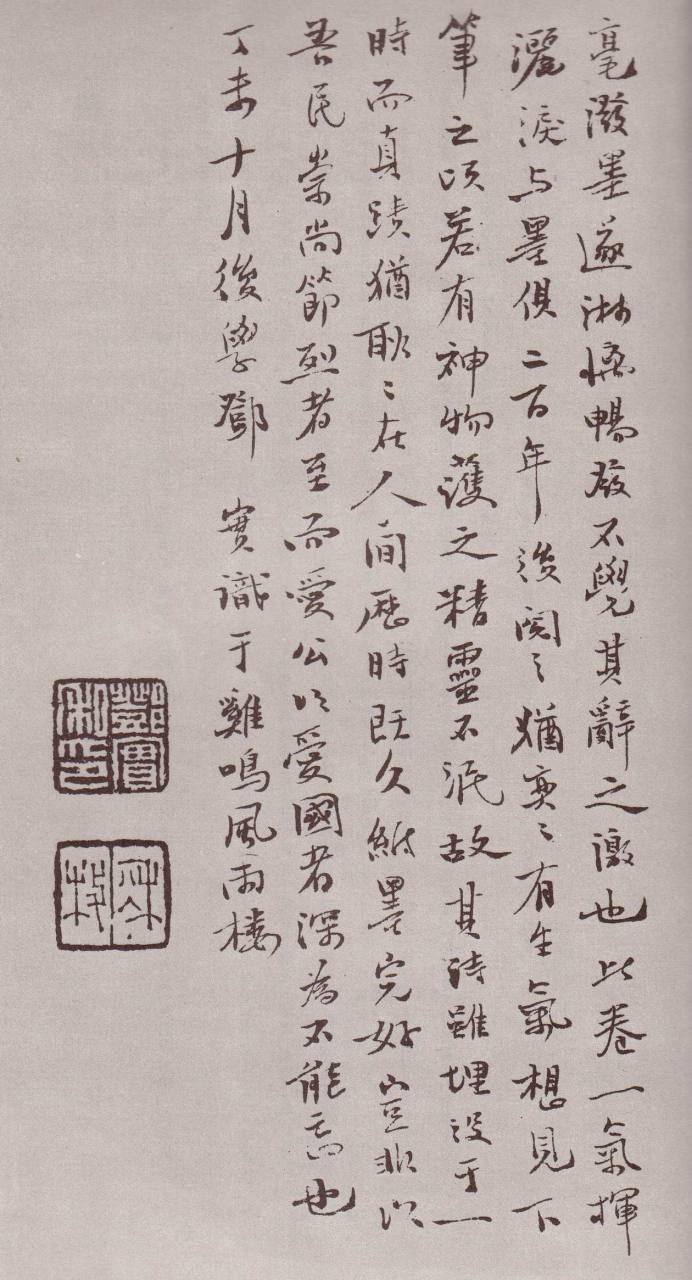 毫潑墨遂淋漓暢發不覺其辭之激也此卷一氣揮
灑淚與墨俱二百年後閱之猶奕〻有生氣想見下
筆之頃若有神物護之精靈不泯故其詩雖埋沒于一
時而真蹟猶耿〻在人間歷時既久紙墨完好豈非以
吾民崇尚節烈者至而愛公以愛國者深為不能忘也
丁未十月後學鄧實識于雞鳴風雨樓
鄧實
秋枚